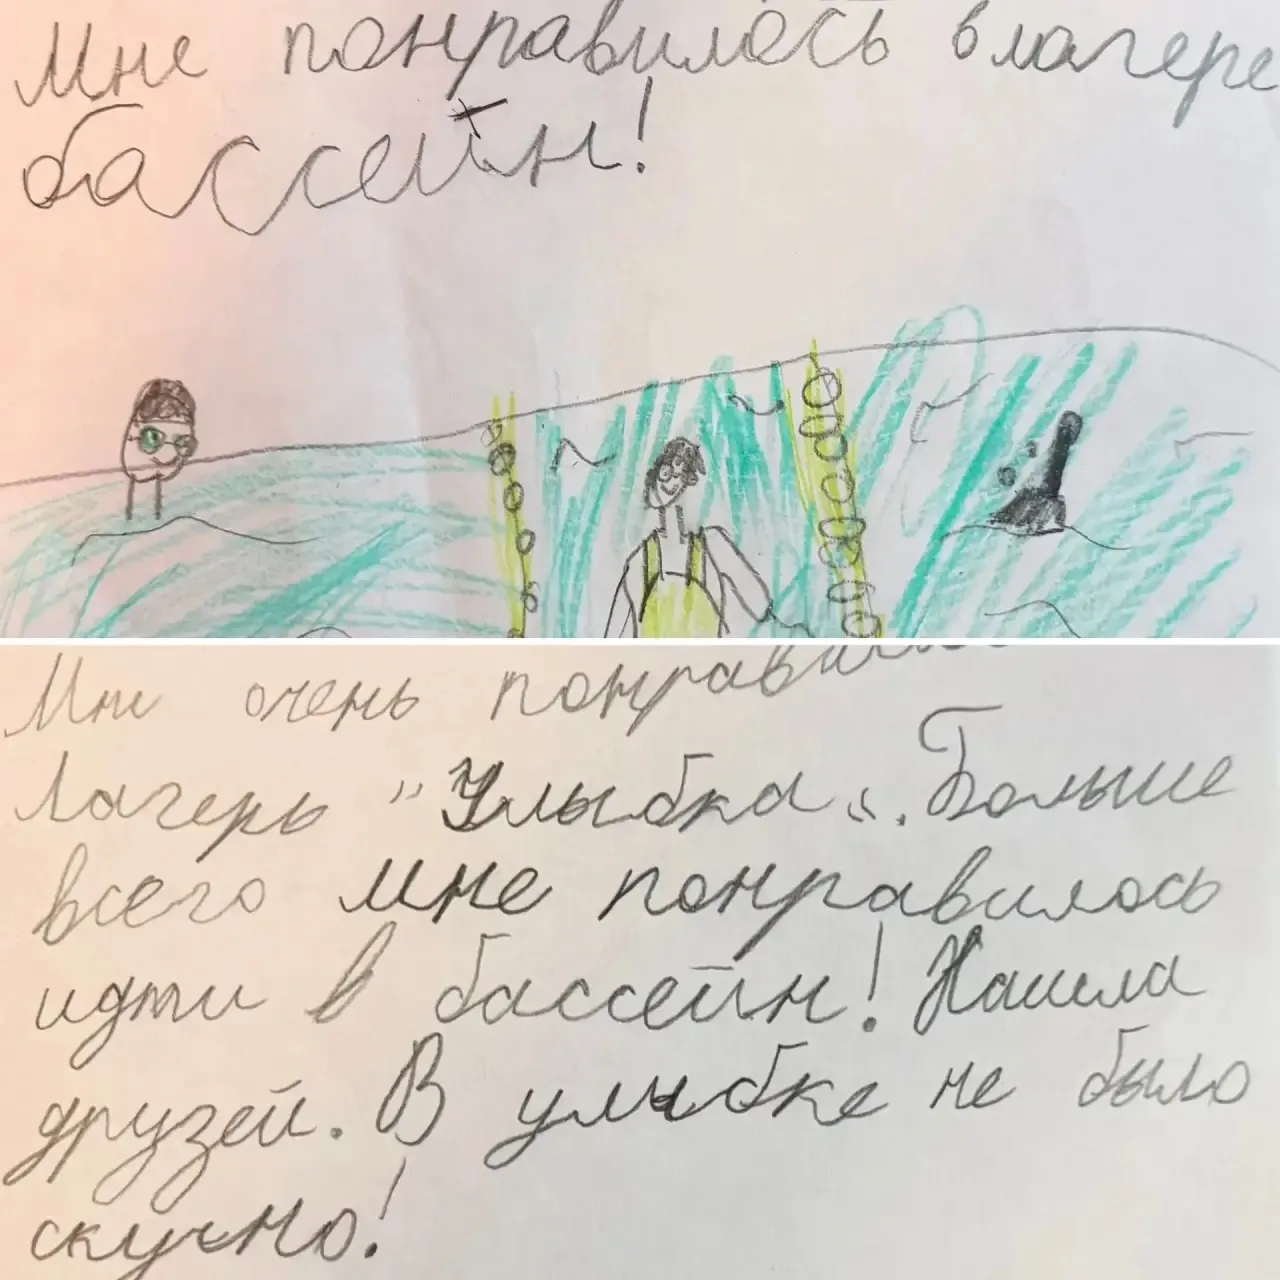 Мне понравилось в лагере
бассейн!
Мне очень
Лагерь "Улыбка". Больше
всего мне понравилось
идти в бассейн! Нашла
друзей. В улыбке не было
скучно!